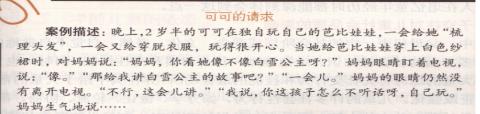 可可的请求
案例描述：晚上，2岁半的可可在独自玩自己的芭比娃娃，一会给她“梳
理头发”，一会又给穿脱衣服，玩得很开心。当她给芭比娃娃穿上白色纱
裙时，对妈妈说：“妈妈，你看她像不像白雪公主呀？”妈妈眼睛盯着电视，
说：“像。”“那给我讲白雪公主的故事吧？”“一会儿。”妈妈的眼睛仍然没
有离开电视。“不行，这会儿讲。”“我说，你这孩子怎么不听话呀，自己玩。”
妈妈生气地说……